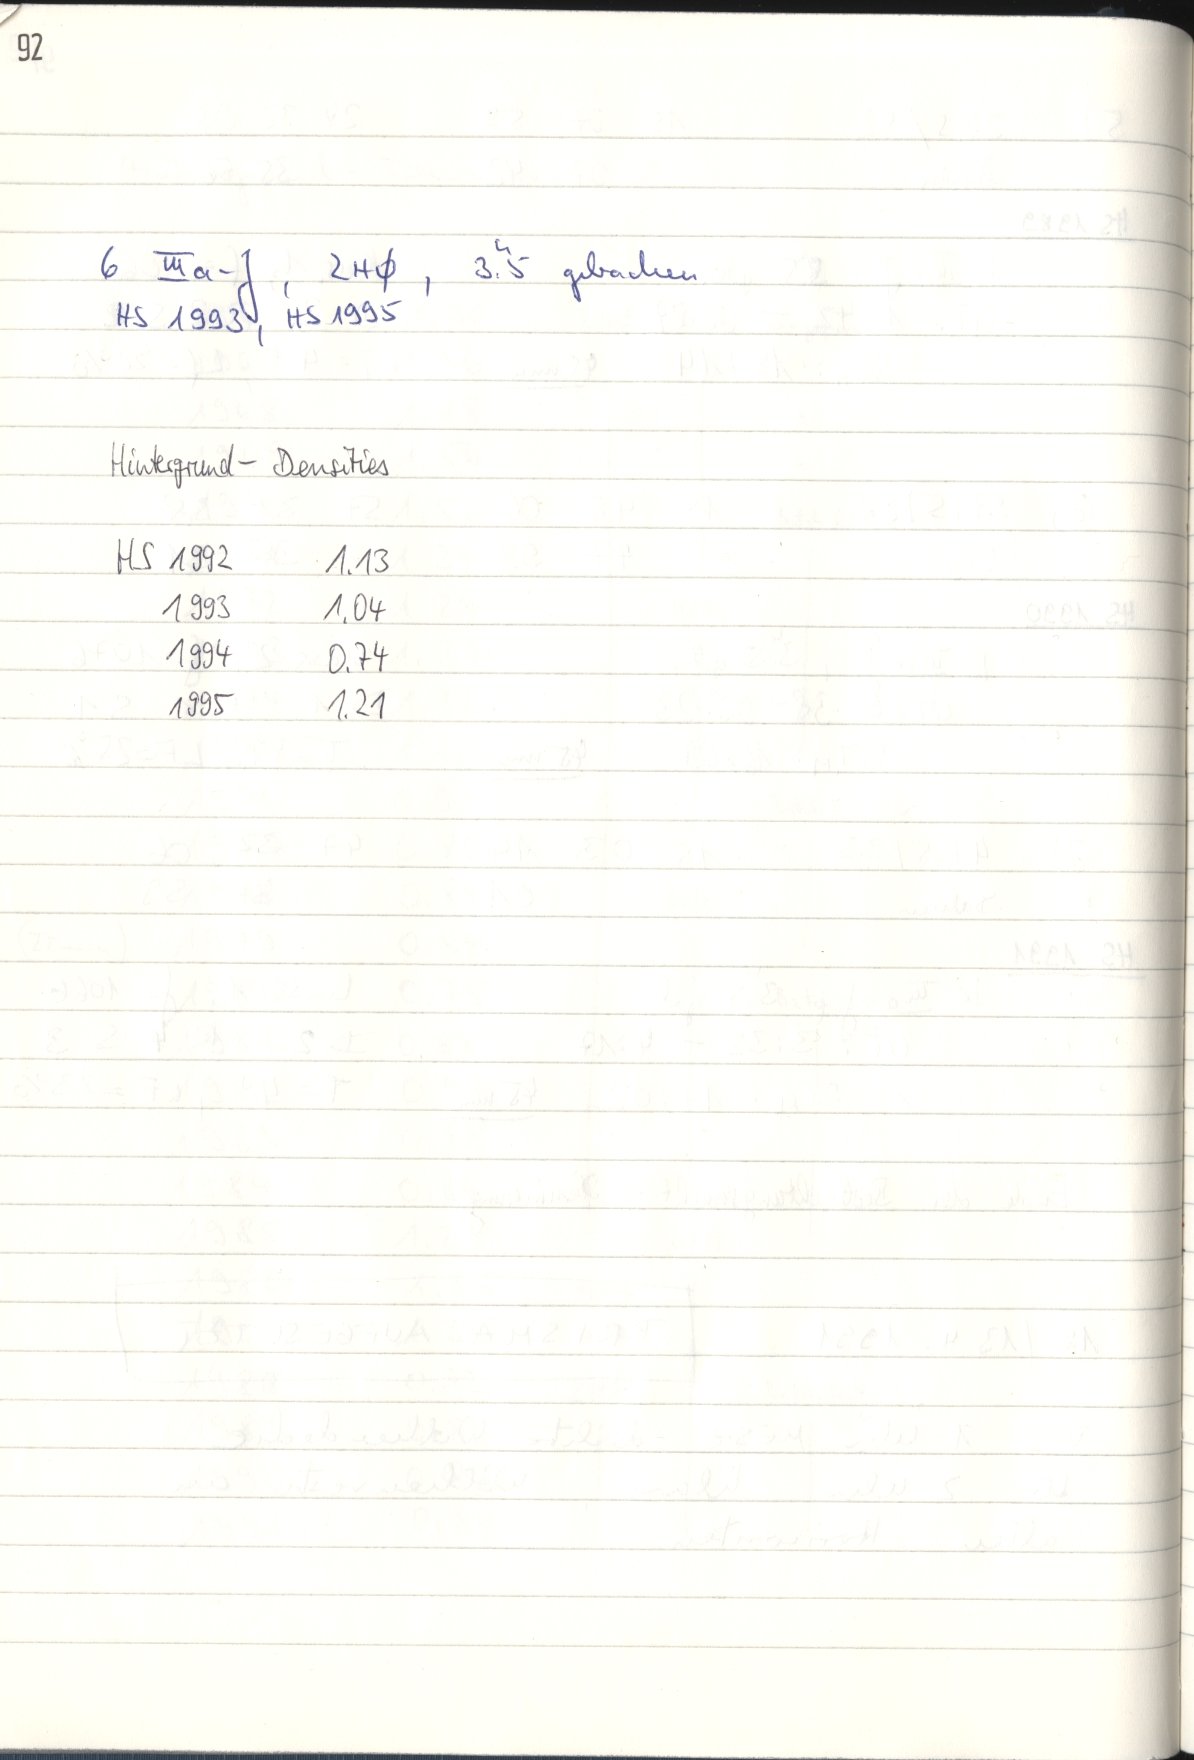 92
6 IIIa-J, 2Hφ, 3.ʰ5 gebacken
HS 1993, HS 1995
Hintergrund- Densities
HS 1992 1.13
1993 1.04
1994 0.74
1995 1.21